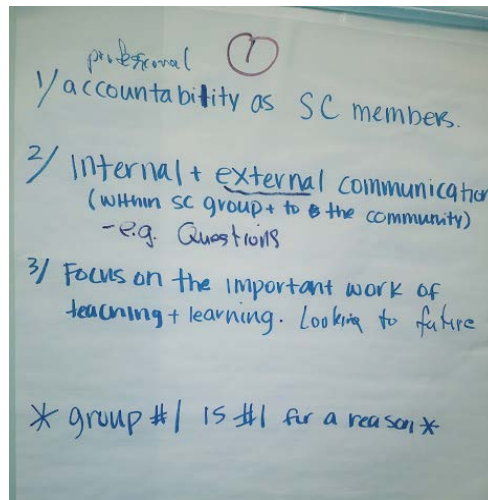 professional ①
1/ accountability as SC members.
2/ Internal + external communication
(within SC group + to the community)
- e.g. Questions
3/ Focus on the important work of
teaching + learning. Looking to future
* group #1 is #1 for a reason *